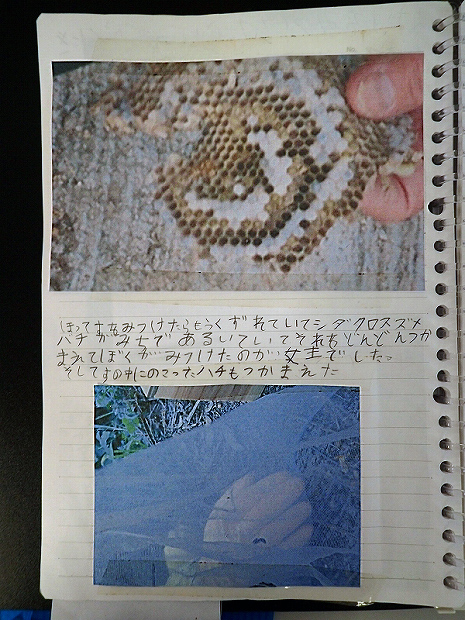 ほってすをみつけたらもうくずれていてシダクロスズメ
バチがみちであるいていてそれもどんどんつか
まえてぼくがみつけたのが女王でした。
そしてすの中にのこったハチもつかまえた